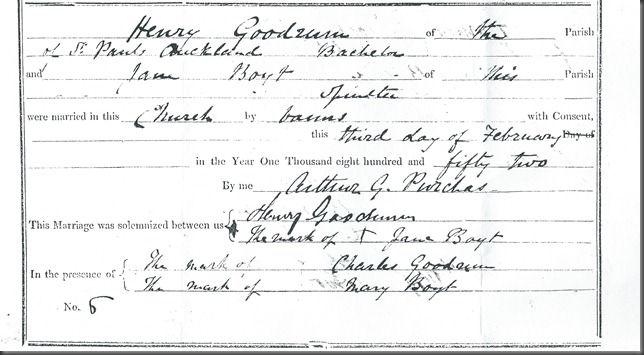 Henry Goodrum of the Parish
of St Pauls Auckland Bachelor
and Jane Boyt of this Parish
Spinster
were married in this Church by banns with Consent,
this third day of February Day of
in the Year One Thousand eight hundred and fifty two
By me Arthur G. Purchas
This Marriage was solemnized between us { Henry Goodrum
The mark of + Jane Boyt
In the presence of { The mark of Charles Goodrum
The mark of Mary Boyt
No. 6